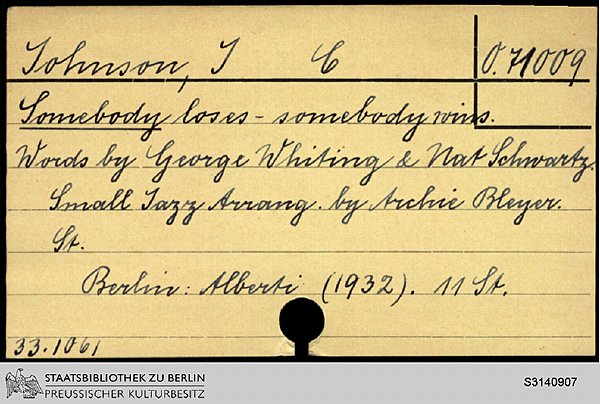 Johnson, J C O.71009
Somebody loses - somebody wins.
Words by George Whiting & Nat Schwartz.
Small Jazz Arrang. by Archie Bleyer.
St.
Berlin: Alberti (1932). 11 St.
33.1061
STAATSBIBLIOTHEK ZU BERLIN
PREUSSISCHER KULTURBESITZ
S3140907